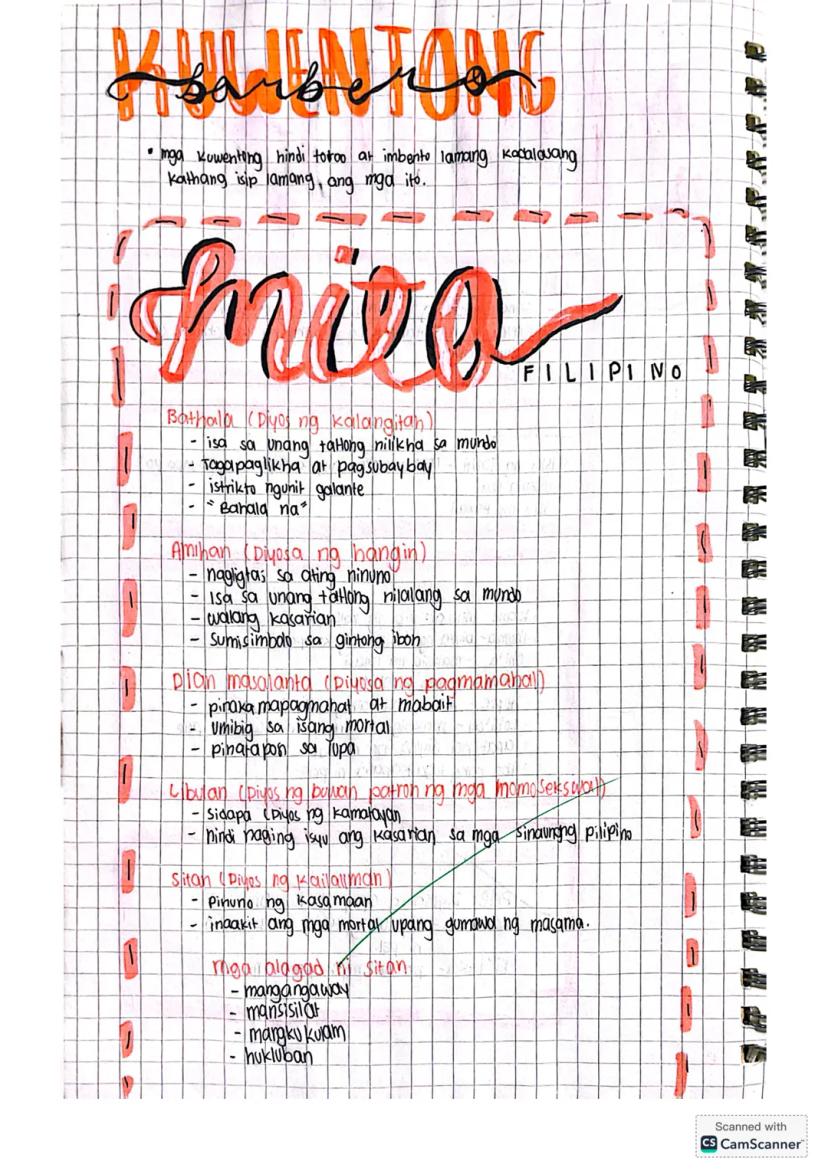 KUWENTONG
barbero
• mga kuwenting hindi totoo at imbento lamang kadalasang
kathang isip lamang, ang mga ito.
mito
FILIPINO
Bathala (Diyos ng kalangitan)
- isa sa unang tatlong nilikha sa mundo
- Tagapaglikha at pagsubaybay
- istrikto ngunit galante
- "Bahala na"
Amihan (Diyosa ng hangin)
- nagligtas sa ating ninuno
- isa sa unang tatlong nilalang sa mundo
- walang kasarian
- sumisimbolo sa gintong ibon
Dian masalanta (Diyosa ng pagmamahal)
- pinakamapagmahal at mabait
- umibig sa isang mortal
- pinatapon sa lupa
Libulan (Diyos ng buwan patron ng mga homosekswal)
- sidapa (Diyos ng kamatayan
- hindi naging isyu ang kasarian sa mga sinaunang pilipino
Sitan (Diyos ng kailaliman)
- pinuno ng kasamaan
- inaakit ang mga mortal upang gumawa ng masama.
mga alagad ni sitan
- mangangaway
- mansisilat
- mangkukulam
- hukluban
Scanned with
CS CamScanner